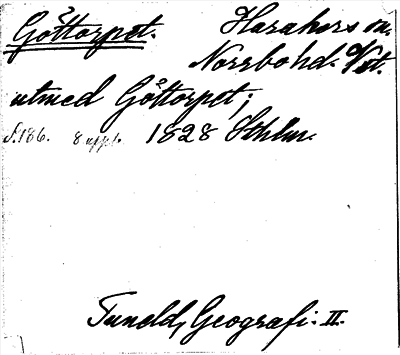 Göttorpet. Harakers sn.
Norrbohd. Vstm.
utmed Göttorpet;
S. 186. 8 uppl. 1828 Sthlm.
Tuneld, Geografi. II.